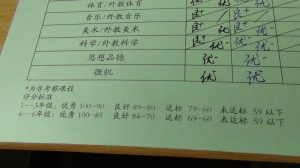 体育/外教体育 优- 优-
音乐/外教音乐
美术/外教美术 良+
科学/外教科学 良+ 优-
思想品德 优- 优-
微机 优- 优-
*为非考察课程
评分标准
1—3年级：优秀100-90 良好89-80 达标79-60 未达标59以下
4—6年级：优秀100-85 良好84-70 达标69-60 未达标59以下